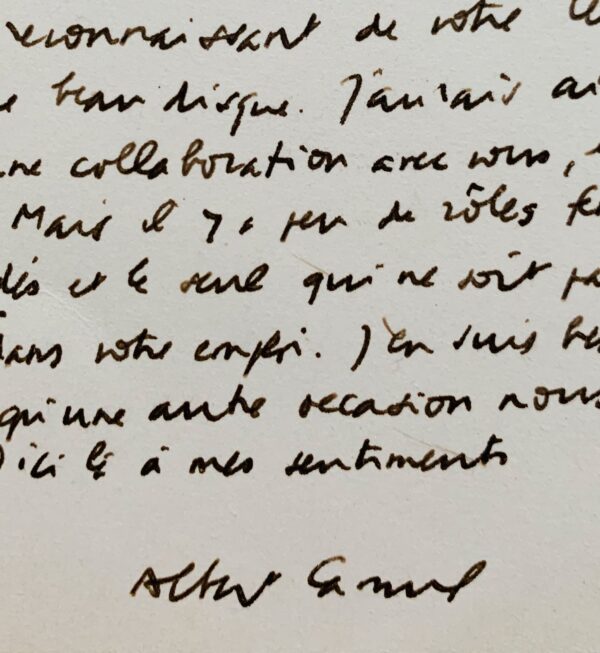 reconnaissant de votre
beau disque. J'aurais ai
ne collaboration avec vous,
Mais il y a peu de rôles fe
dés et le seul qui ne soit pa
dans votre emploi. J'en suis
qu'une autre occasion nous
D'ici là à mes sentiments
Albert Camus